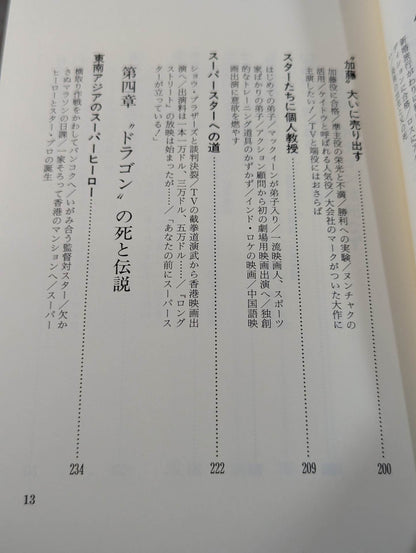 “加藤”大いに売り出す
加藤役に合格／準主役の栄光と不満／勝利への実験／ヌンチャクの
活用／ケイトウと呼ばれる人気役／大会社のマークがついた大作に
主演したい！／TVと端役にはおさらば
200
スターたちに個人教授
はじめての弟子／マックィーンが弟子入り／一流映画人、スポーツ
家ばかりの弟子／アクション顧問から初の劇場用映画出演へ／独創
的なトレーニング道具のかずかず／インド・ロケの映画／中国語映
画出演に意欲を燃やす
209
スーパースターへの道
ショウ・ブラザーズと談判決裂／TVの截拳道演武から香港映画出
演へ／出演料は一本一万ドル、三万ドル、五万ドル……／『ロング
ストリート』の放映は始まったが……／「あなたの前にスーパース
ターが立っている！
222
第四章　“ドラゴン”の死と伝説
東南アジアのスーパーヒーロー
横取り作戦をかわしてバンコクへ／いがみ合う監督対スター／欠か
さぬマラソンの日課／一家そろって香港のマンションへ／スーパー
ヒーローとスター・プロの誕生
234
13